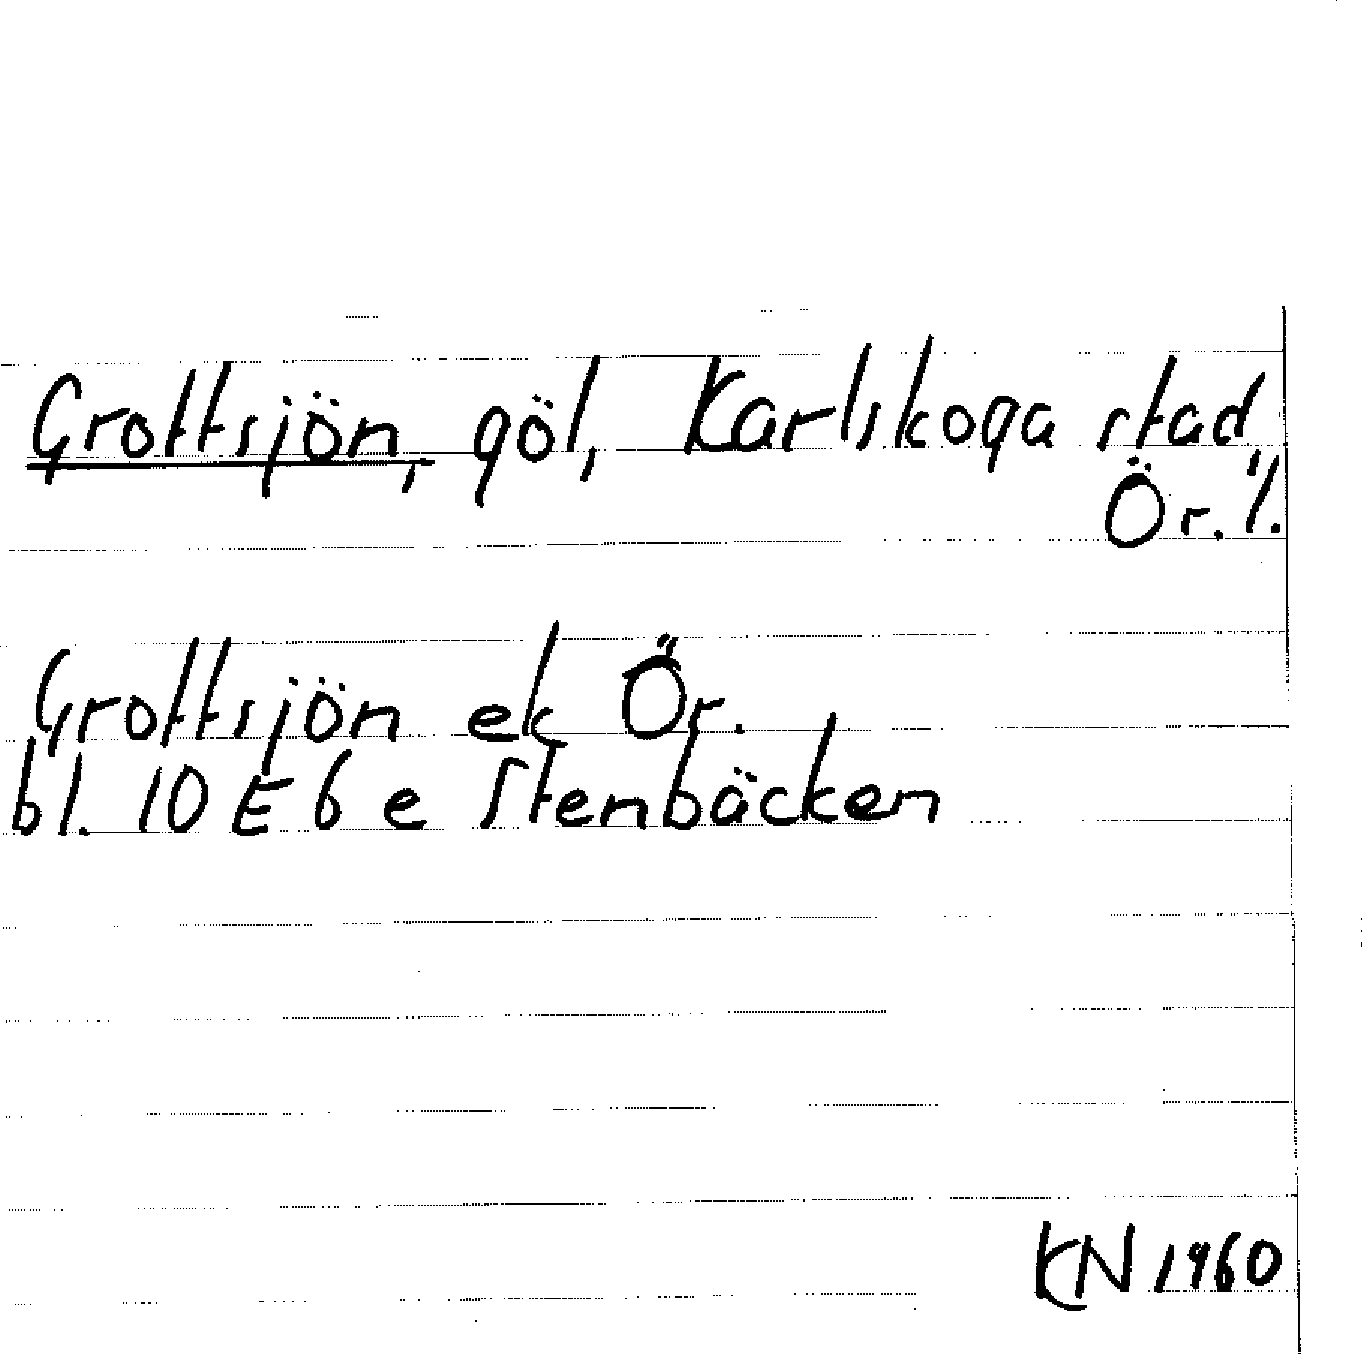 Grottsjön, göl, Karlskoga stad,
Ör. l.
Grottsjön ek Ör.
bl. 10 E 6 e Stenbäcken
KN 1960